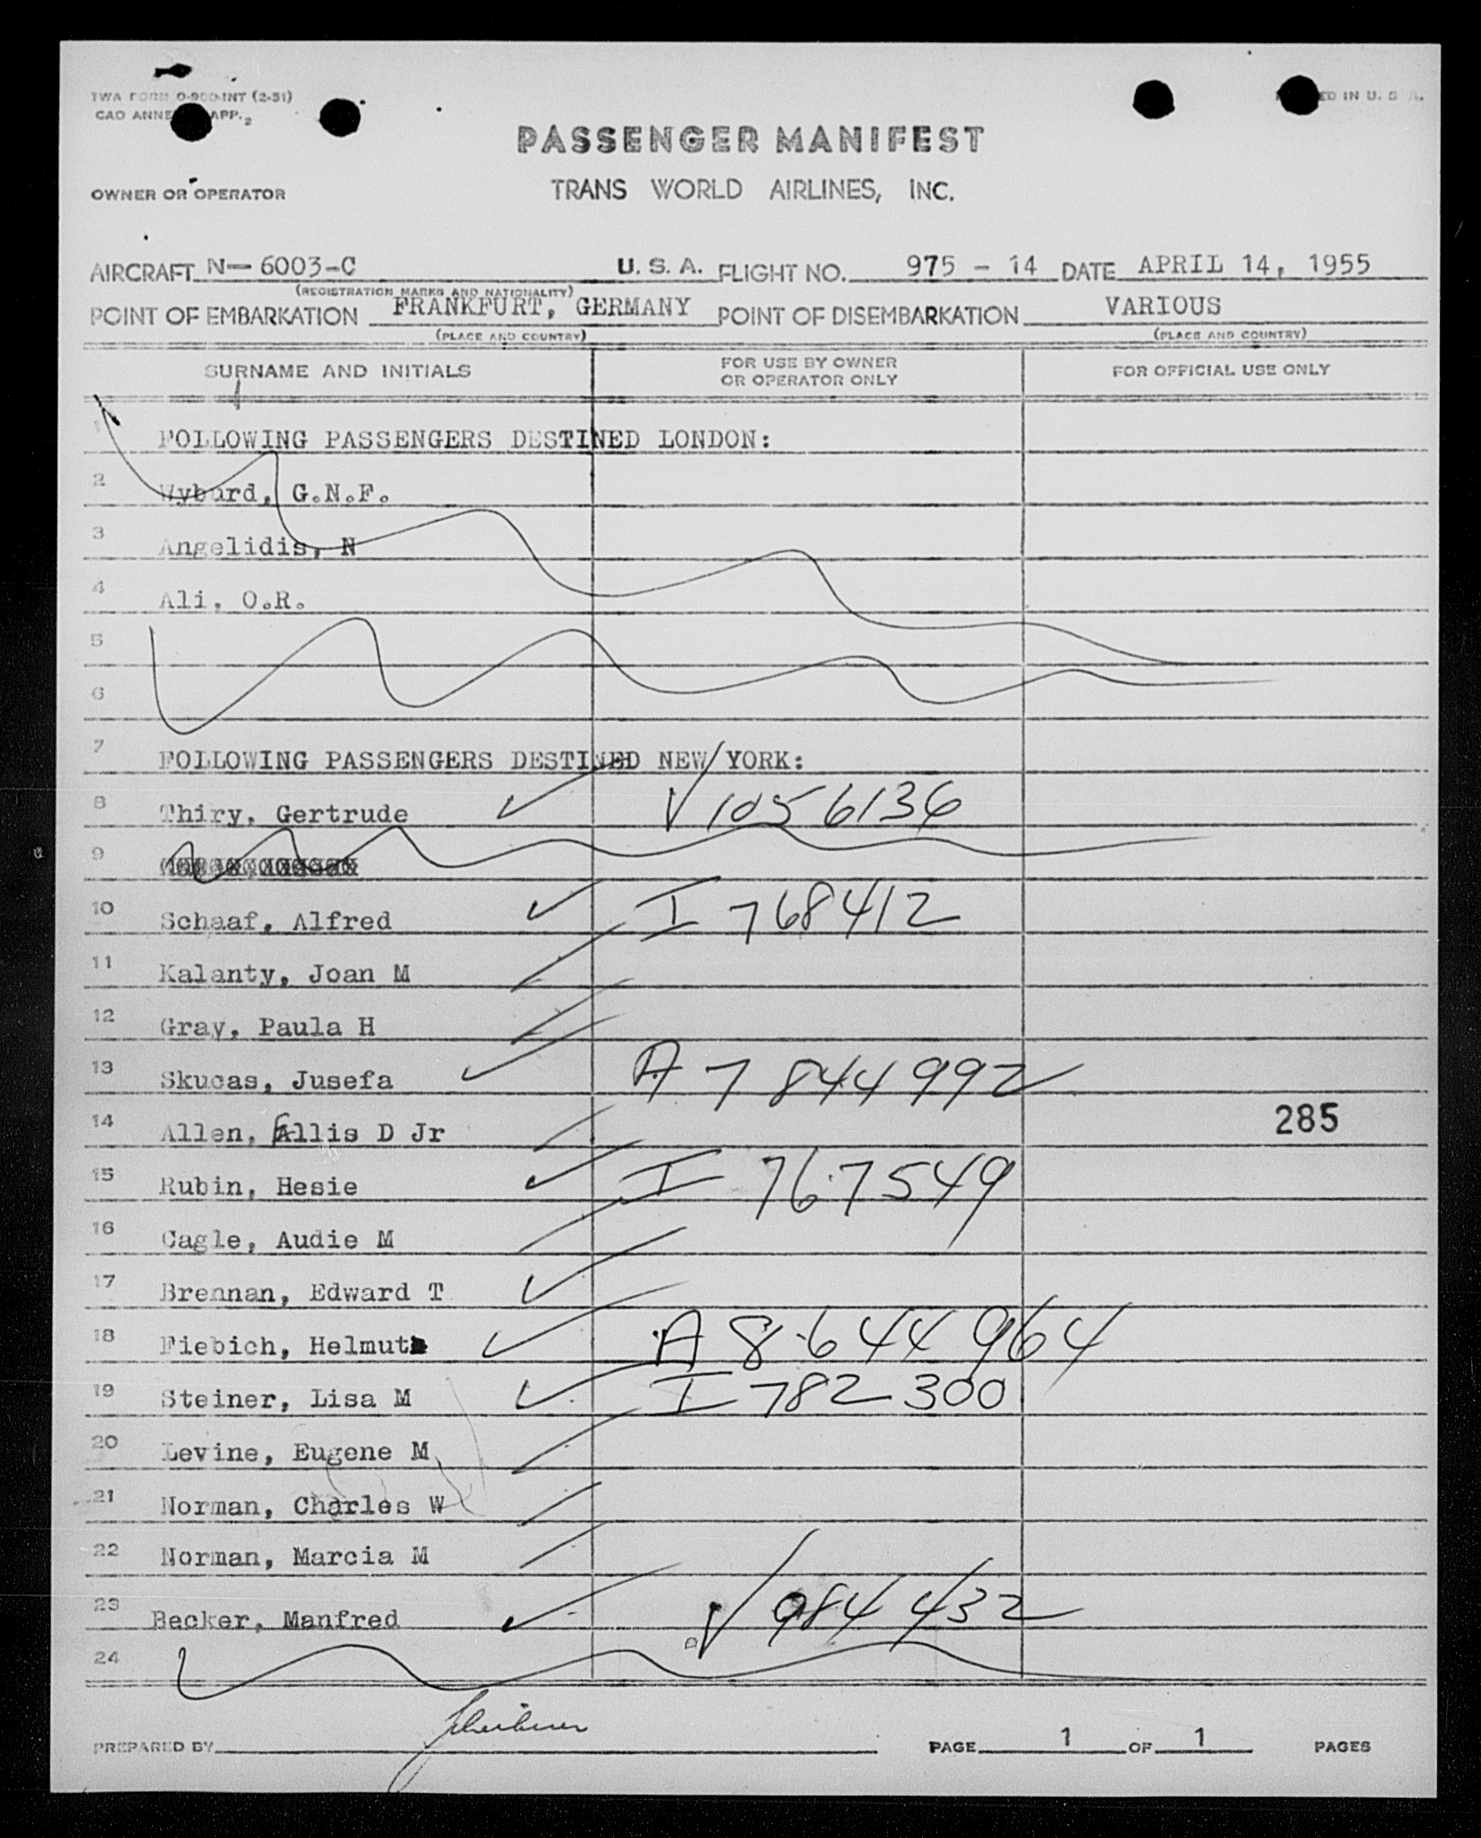 TWA FORM O-900-INT (2-51)
CAO ANNE APP. 2
ED IN U. S. A.
PASSENGER MANIFEST
OWNER OR OPERATOR
TRANS WORLD AIRLINES, INC.
AIRCRAFT N-6003-C U. S. A. FLIGHT NO. 975 - 14 DATE APRIL 14, 1955
(REGISTRATION MARKS AND NATIONALITY)
POINT OF EMBARKATION FRANKFURT, GERMANY POINT OF DISEMBARKATION VARIOUS
(PLACE AND COUNTRY) (PLACE AND COUNTRY)
SURNAME AND INITIALS FOR USE BY OWNER OR OPERATOR ONLY FOR OFFICIAL USE ONLY
1 FOLLOWING PASSENGERS DESTINED LONDON:
2 Wyburd, G.N.F.
3 Angelidis, N
4 Ali, O.R.
5
6
7 FOLLOWING PASSENGERS DESTINED NEW YORK:
8 Thiry, Gertrude V 1056136
9
10 Schaaf, Alfred I 768412
11 Kalanty, Joan M
12 Gray, Paula H
13 Skucas, Jusefa A 7 844 992
14 Allen, Ellis D Jr 285
15 Rubin, Hesie I 767549
16 Cagle, Audie M
17 Brennan, Edward T
18 Fiebich, Helmut A 8 644 964
19 Steiner, Lisa M I 782 300
20 Levine, Eugene M
21 Norman, Charles W
22 Norman, Marcia M
23 Becker, Manfred V 984 432
24
PREPARED BY PAGE 1 OF 1 PAGES